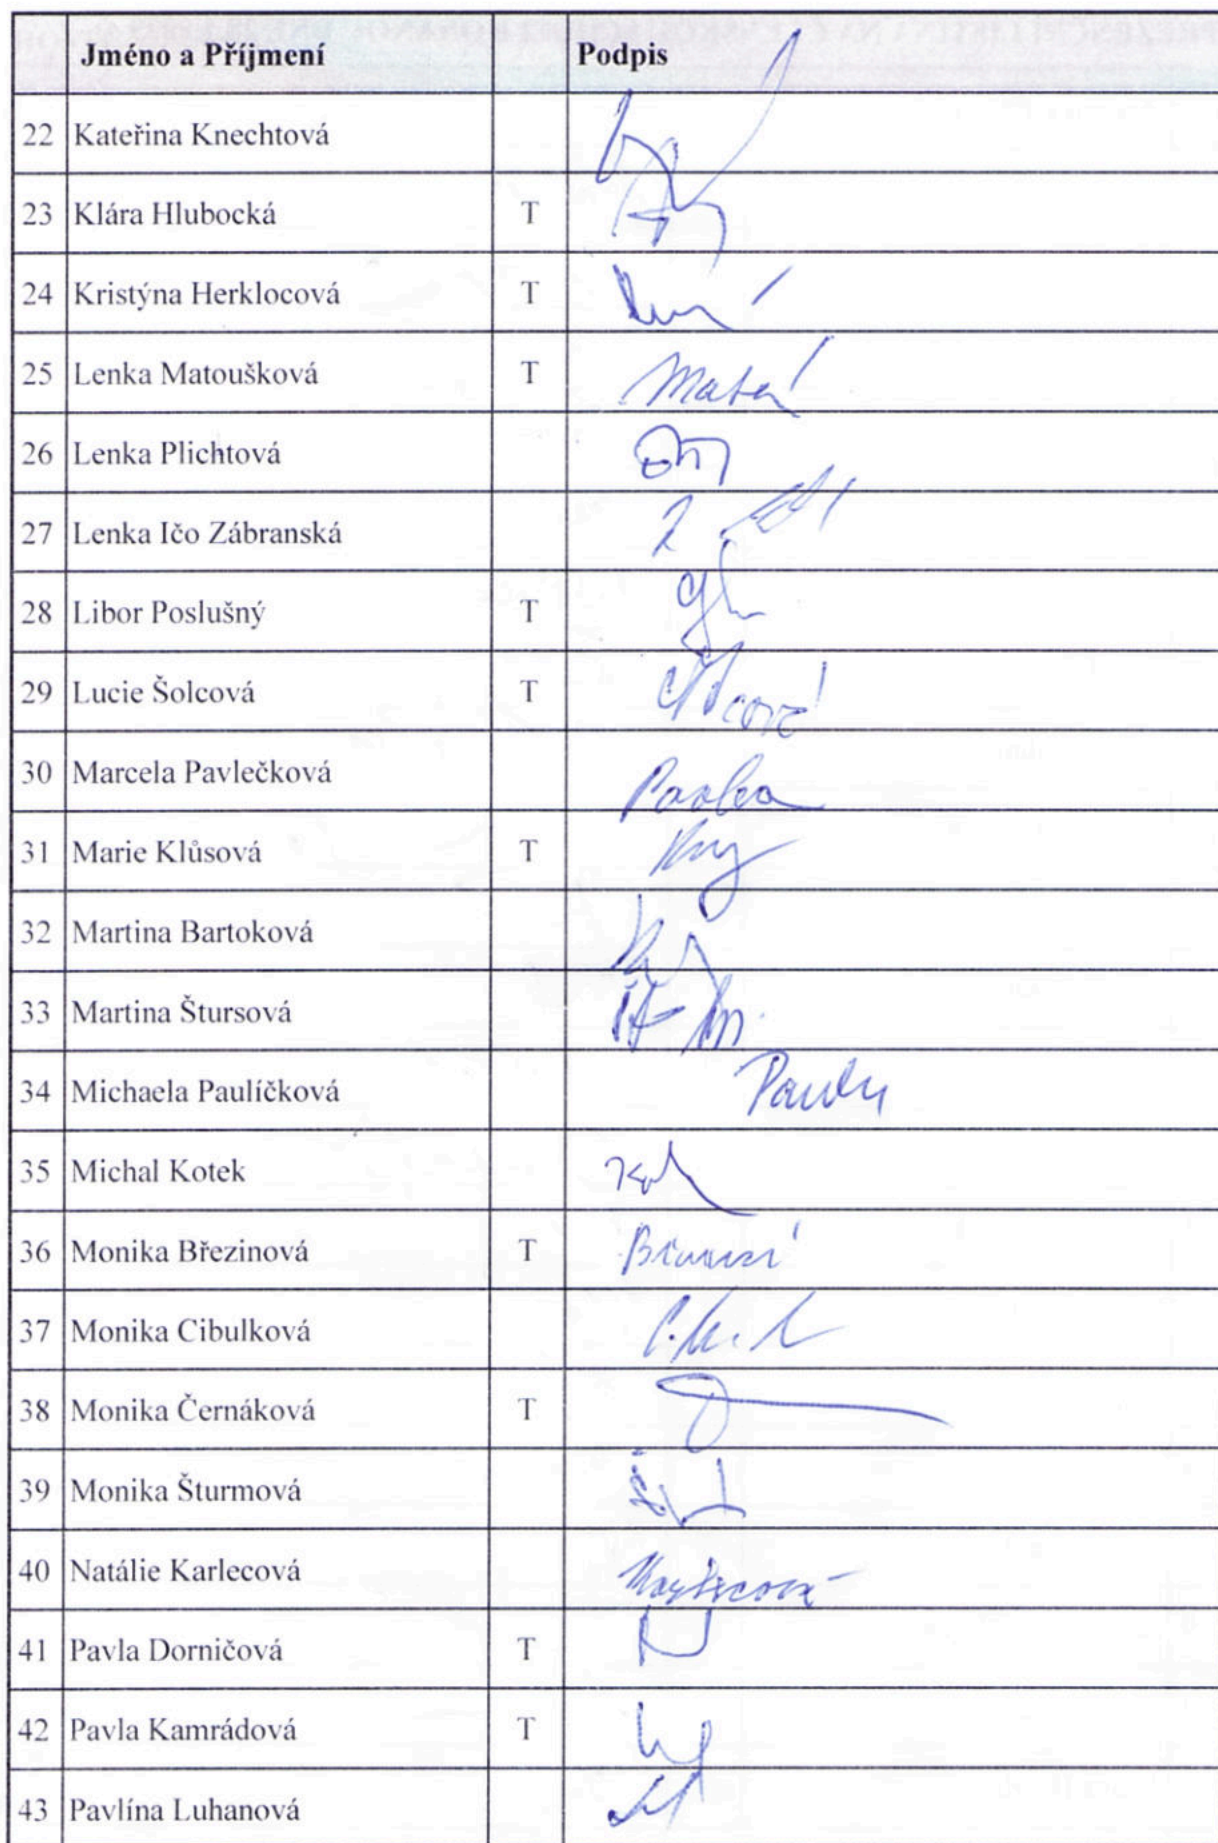 Jméno a Příjmení Podpis
22 Kateřina Knechtová
23 Klára Hlubocká T
24 Kristýna Herklocová T
25 Lenka Matoušková T
26 Lenka Plichtová
27 Lenka Ičo Zábranská
28 Libor Poslušný T
29 Lucie Šolcová T
30 Marcela Pavlečková
31 Marie Klůsová T
32 Martina Bartoková
33 Martina Štursová
34 Michaela Paulíčková
35 Michal Kotek
36 Monika Březinová T
37 Monika Cibulková
38 Monika Černáková T
39 Monika Šturmová
40 Natálie Karlecová
41 Pavla Dorničová T
42 Pavla Kamrádová T
43 Pavlína Luhanová